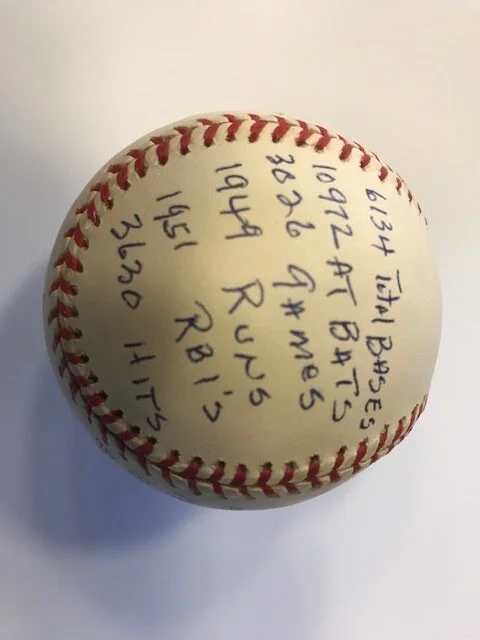 6134 Total BASES
10972 AT BATS
3026 GAMES
1949 RUNS
1951 RBI'S
3630 HITS